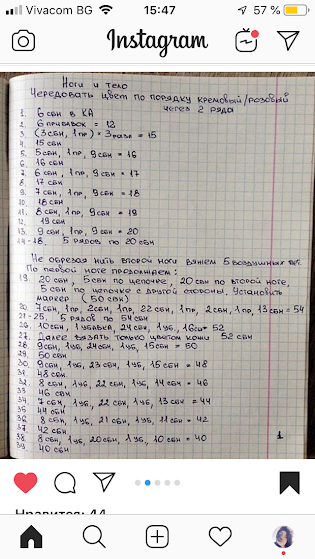 Vivacom BG
15:47
57 %
Instagram
Ноги и тело
Чередовать цвет по порядку кремовый/розовый
через 2 ряда
1. 6 сбн в КА
2. 6 прибавок = 12
3. (3 сбн, 1 пр) × 3 раза = 15
4. 15 сбн
5. 5 сбн, 1 пр, 9 сбн = 16
6. 16 сбн
7. 6 сбн, 1 пр, 9 сбн = 17
8. 17 сбн
9. 7 сбн, 1 пр, 9 сбн = 18
10. 18 сбн
11. 8 сбн, 1 пр, 9 сбн = 19
12. 19 сбн
13. 9 сбн, 1 пр, 9 сбн = 20
14-18. 5 рядов по 20 сбн
Не обрезая нить второй ноги вяжем 5 воздушных
По первой ноге продолжаем:
19. 20 сбн, 5 сбн по цепочке, 20 сбн по второй ноге,
5 сбн по цепочке с другой стороны. Установить
маркер (50 сбн)
20. 7 сбн, 1 пр, 2 сбн, 1 пр, 22 сбн, 1 пр, 2 сбн, 1 пр, 13 сбн = 54
21-25. 5 рядов по 54 сбн
26. 10 сбн, 1 убавка, 24 сбн, 1 уб, 16 сбн = 52
27. Далее вязать только цветом кожи 52 сбн
28. 9 сбн, 1 уб, 24 сбн, 1 уб, 15 сбн = 50
29. 50 сбн
30. 9 сбн, 1 уб, 23 сбн, 1 уб, 15 сбн = 48
31. 48 сбн
32. 8 сбн, 1 уб, 22 сбн, 1 уб, 14 сбн = 46
33. 46 сбн
34. 7 сбн, 1 уб, 22 сбн, 1 уб, 13 сбн = 44
35. 44 сбн
36. 8 сбн, 1 уб, 21 сбн, 1 уб, 11 сбн = 42
37. 42 сбн
38. 8 сбн, 1 уб, 20 сбн, 1 уб, 10 сбн = 40
39. 40 сбн
1
Нравится: 44